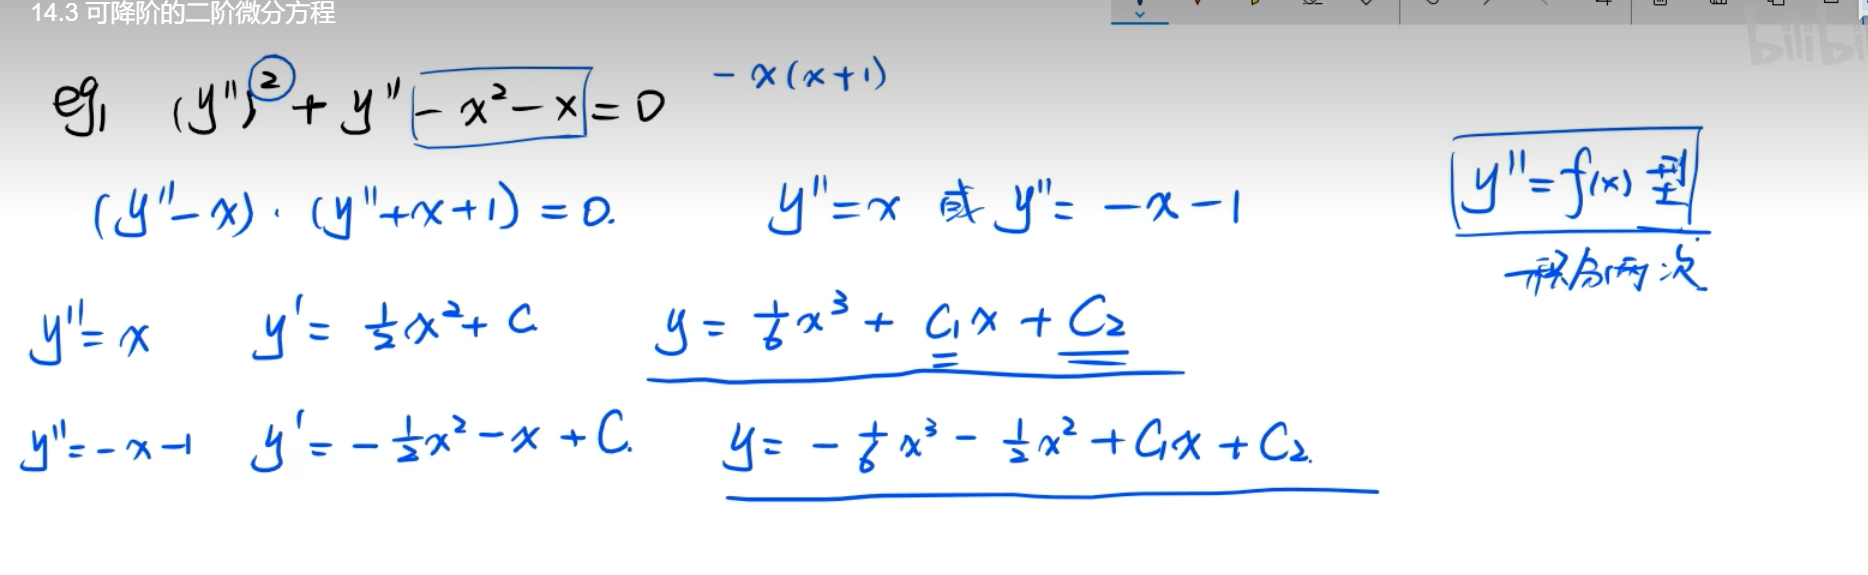 14.3 可降阶的二阶微分方程
bilibi
eg1 (y'')² + y'' - x² - x = 0 - x(x+1)
(y''-x)·(y''+x+1) = 0. y''=x 或 y''= -x-1
y''=f(x) 型
积分两次
y''= x y'= ½x² + C y = 1/6 x³ + C₁x + C₂
y''= -x-1 y'= -½x² - x + C. y= -1/6 x³ - ½x² + C₁x + C₂.